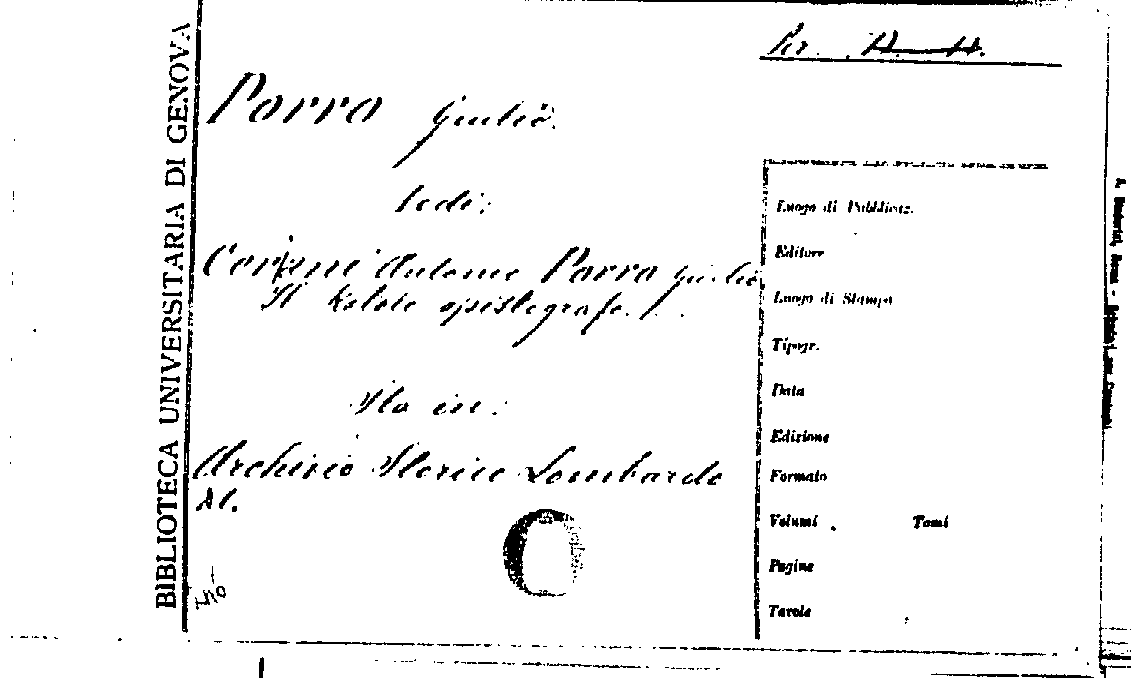 BIBLIOTECA UNIVERSITARIA DI GENOVA
Porro Giulio.
Vedi:
Antonio Porro Giulio
Il opistografo.
Sta in:
Archivio Storico Lombardo
Luogo di Pubblicaz.
Editore
Luogo di Stampa
Tipogr.
Data
Edizione
Formato
Volumi Tomi
Pagine
Tavole